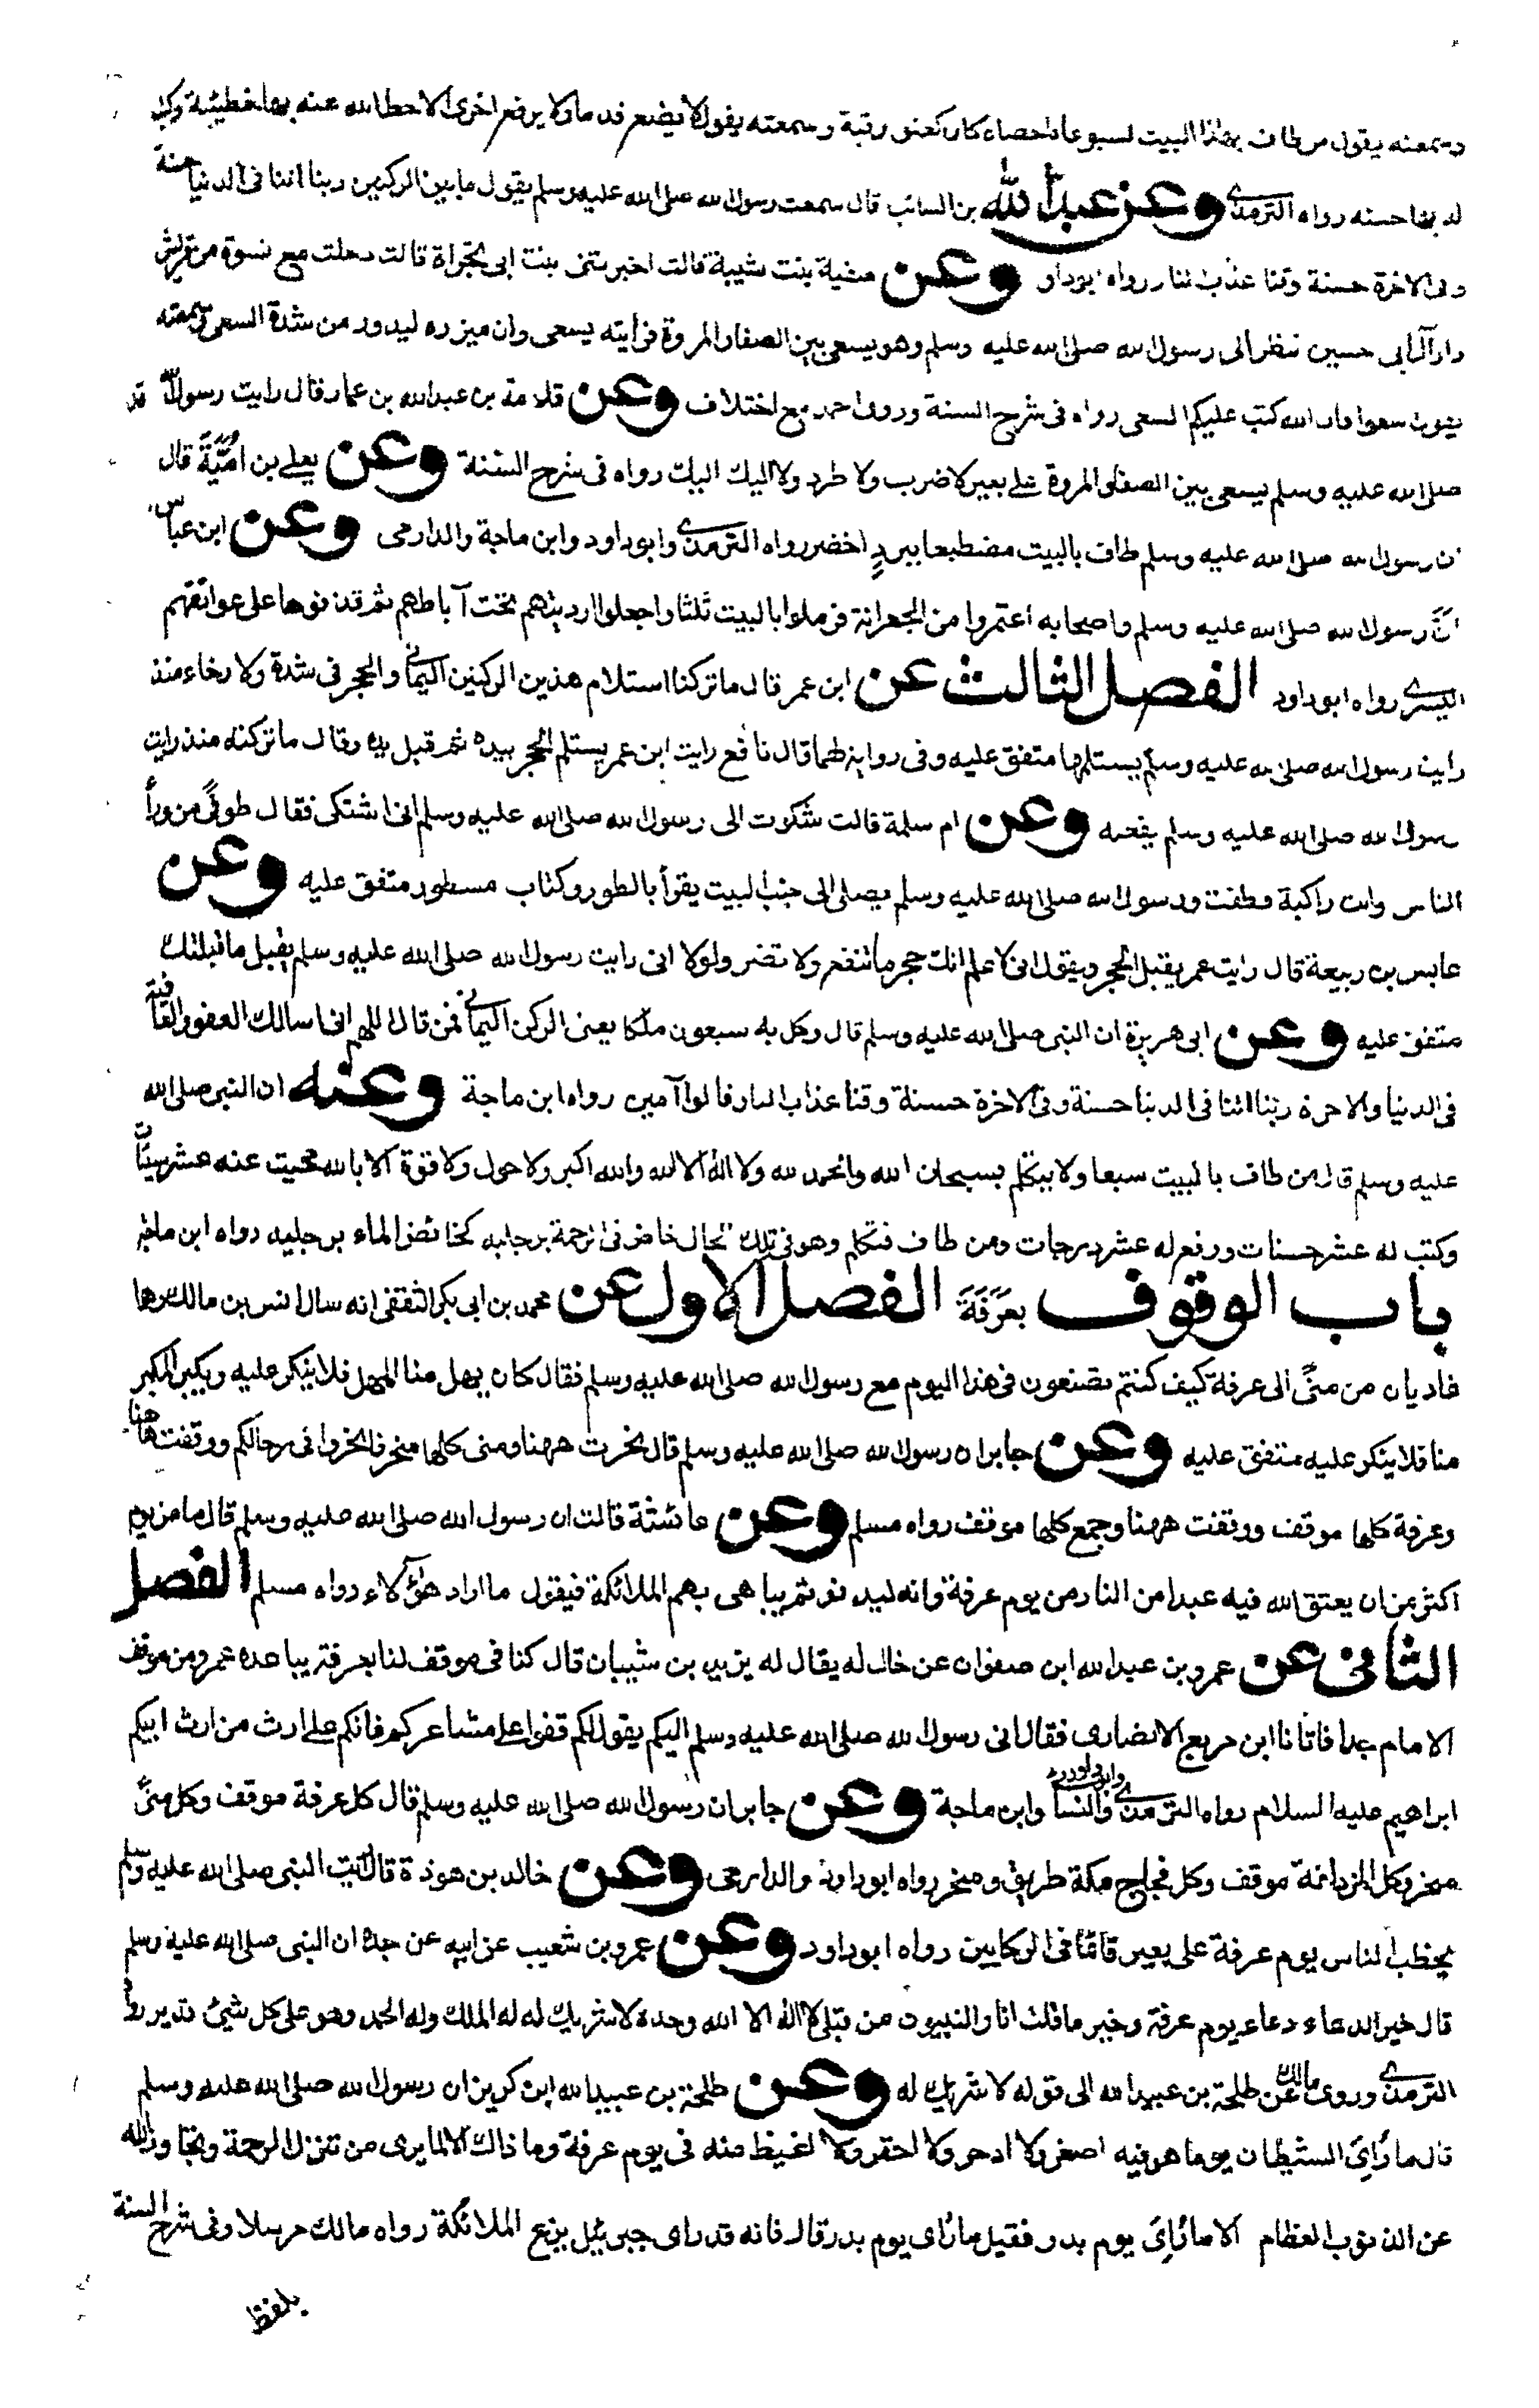 وسمعته يقول من طاف بهذا البيت اسبوعا فاحصاه كان كعتق رقبة وسمعته يقول لا يضع قدما ولا يرفع اخرى الا حط الله عنه بها خطيئة وكتب
له بها حسنة رواه الترمذي وعن عبد الله بن السائب قال سمعت رسول الله صلى الله عليه وسلم يقول ما بين الركنين ربنا اتنا فى الدنيا حسنة
وفى الاخرة حسنة وقنا عذاب النار رواه ابوداود وعن صفية بنت شيبة قالت اخبرتنى بنت ابى تجراة قالت دخلت مع نسوة من قريش
دار آل ابى حسين ننظر الى رسول الله صلى الله عليه وسلم وهو يسعى بين الصفا والمروة فرأيته يسعى وان ميزره ليدور من شدة السعى وسمعته
يقول اسعوا فان الله كتب عليكم السعى رواه فى شرح السنة وروى احمد مع اختلاف وعن قدامة بن عبد الله بن عمار قال رايت رسول الله
صلى الله عليه وسلم يسعى بين الصفا والمروة على بعير لا ضرب ولا طرد ولا اليك اليك رواه فى شرح السنة وعن يعلى بن امية قال
ان رسول الله صلى الله عليه وسلم طاف بالبيت مضطبعا ببرد اخضر رواه الترمذي وابوداود وابن ماجة والدارمى وعن ابن عباس
ان رسول الله صلى الله عليه وسلم واصحابه اعتمروا من الجعرانة فرملوا بالبيت ثلثا واجعلوا ارديتهم تحت آباطهم ثم قذفوها على عواتقهم
اليسرى رواه ابوداود الفصل الثالث عن ابن عمر قال ما تركنا استلام هذين الركنين اليمانى والحجر فى شدة ولا رخاء منذ
رايت رسول الله صلى الله عليه وسلم يستلمهما متفق عليه وفى رواية لهما قال نافع رايت ابن عمر يستلم الحجر بيده ثم قبل يده وقال ما تركته منذ رايت
رسول الله صلى الله عليه وسلم يفعله وعن ام سلمة قالت شكوت الى رسول الله صلى الله عليه وسلم انى اشتكى فقال طوفى من ورأ
الناس وانت راكبة فطفت ورسول الله صلى الله عليه وسلم يصلى الى جنب البيت يقرأ بالطور وكتاب مسطور متفق عليه وعن
عابس بن ربيعة قال رايت عمر يقبل الحجر ويقول انى لاعلم انك حجر ما تنفع ولا تضر ولولا انى رايت رسول الله صلى الله عليه وسلم يقبل ما قبلتك
متفق عليه وعن ابى هريرة ان النبى صلى الله عليه وسلم قال وكل به سبعون ملكا يعنى الركن اليمانى فمن قال اللهم انى اسالك العفو والعافية
فى الدنيا والاخرة ربنا اتنا فى الدنيا حسنة وفى الاخرة حسنة وقنا عذاب النار قالوا آمين رواه ابن ماجة وعنه ان النبى صلى الله
عليه وسلم قال من طاف بالبيت سبعا ولا يتكلم بسبحان الله والحمد لله ولا اله الا الله والله اكبر ولا حول ولا قوة الا بالله محيت عنه عشر سيئات
وكتب له عشر حسنات ورفع له عشر درجات ومن طاف فتكلم وهو فى تلك الحال خاض فى الرحمة برجليه كخائض الماء برجليه رواه ابن ماجة
باب الوقوف بعرفة الفصل الاول عن محمد بن ابى بكر الثقفى انه سال انس بن مالك وهما
غاديان من منى الى عرفة كيف كنتم تصنعون فى هذا اليوم مع رسول الله صلى الله عليه وسلم فقال كان يهل منا المهل فلا ينكر عليه ويكبر المكبر
منا فلا ينكر عليه متفق عليه وعن جابر ان رسول الله صلى الله عليه وسلم قال نحرت ههنا ومنى كلها منحر فانحروا فى رحالكم ووقفت ههنا
وعرفة كلها موقف ووقفت ههنا وجمع كلها موقف رواه مسلم وعن عائشة قالت ان رسول الله صلى الله عليه وسلم قال ما من يوم
اكثر من ان يعتق الله فيه عبدا من النار من يوم عرفة وانه ليدنو ثم يباهى بهم الملائكة فيقول ما اراد هؤلاء رواه مسلم الفصل
الثانى عن عمرو بن عبد الله ابن صفوان عن خال له يقال له يزيد بن شيبان قال كنا فى موقف لنا بعرفة يباعده عمرو من موقف
الامام جدا فاتانا ابن مربع الانصارى فقال انى رسول الله صلى الله عليه وسلم اليكم يقول لكم قفوا على مشاعركم فانكم على ارث من ارث ابيكم
ابراهيم عليه السلام رواه الترمذي وابوداود والنسائى وابن ماجة وعن جابر ان رسول الله صلى الله عليه وسلم قال كل عرفة موقف وكل منى
منحر وكل المزدلفة موقف وكل فجاج مكة طريق ومنحر رواه ابوداود والدارمى وعن خالد بن هوذة قال رايت النبى صلى الله عليه وسلم
يخطب الناس يوم عرفة على بعير قائما فى الركابين رواه ابوداود وعن عمرو بن شعيب عن ابيه عن جده ان النبى صلى الله عليه وسلم
قال خير الدعاء دعاء يوم عرفة وخير ما قلت انا والنبيون من قبلى لا اله الا الله وحده لا شريك له له الملك وله الحمد وهو على كل شئ قدير رواه
الترمذي وروى مالك عن طلحة بن عبيد الله الى قوله لا شريك له وعن طلحة بن عبيد الله ابن كريز ان رسول الله صلى الله عليه وسلم
قال ما رأى الشيطان يوما هو فيه اصغر ولا ادحر ولا احقر ولا اغيظ منه فى يوم عرفة وما ذاك الا لما يرى من تنزل الرحمة وتجاوز الله
عن الذنوب العظام الا ما رأى يوم بدر فقيل ما رأى يوم بدر قال فانه قد راى جبرئيل يزع الملائكة رواه مالك مرسلا وفى شرح السنة
بلفظ